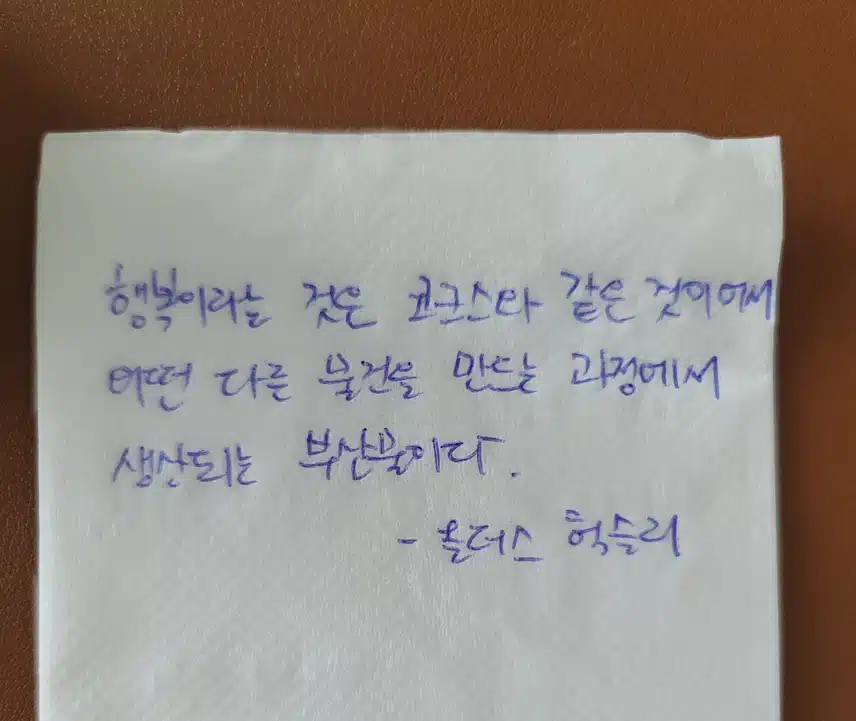 행복이라는 것은 코크스와 같은 것이어서
어떤 다른 물건을 만드는 과정에서
생산되는 부산물이다.
- 올더스 헉슬리